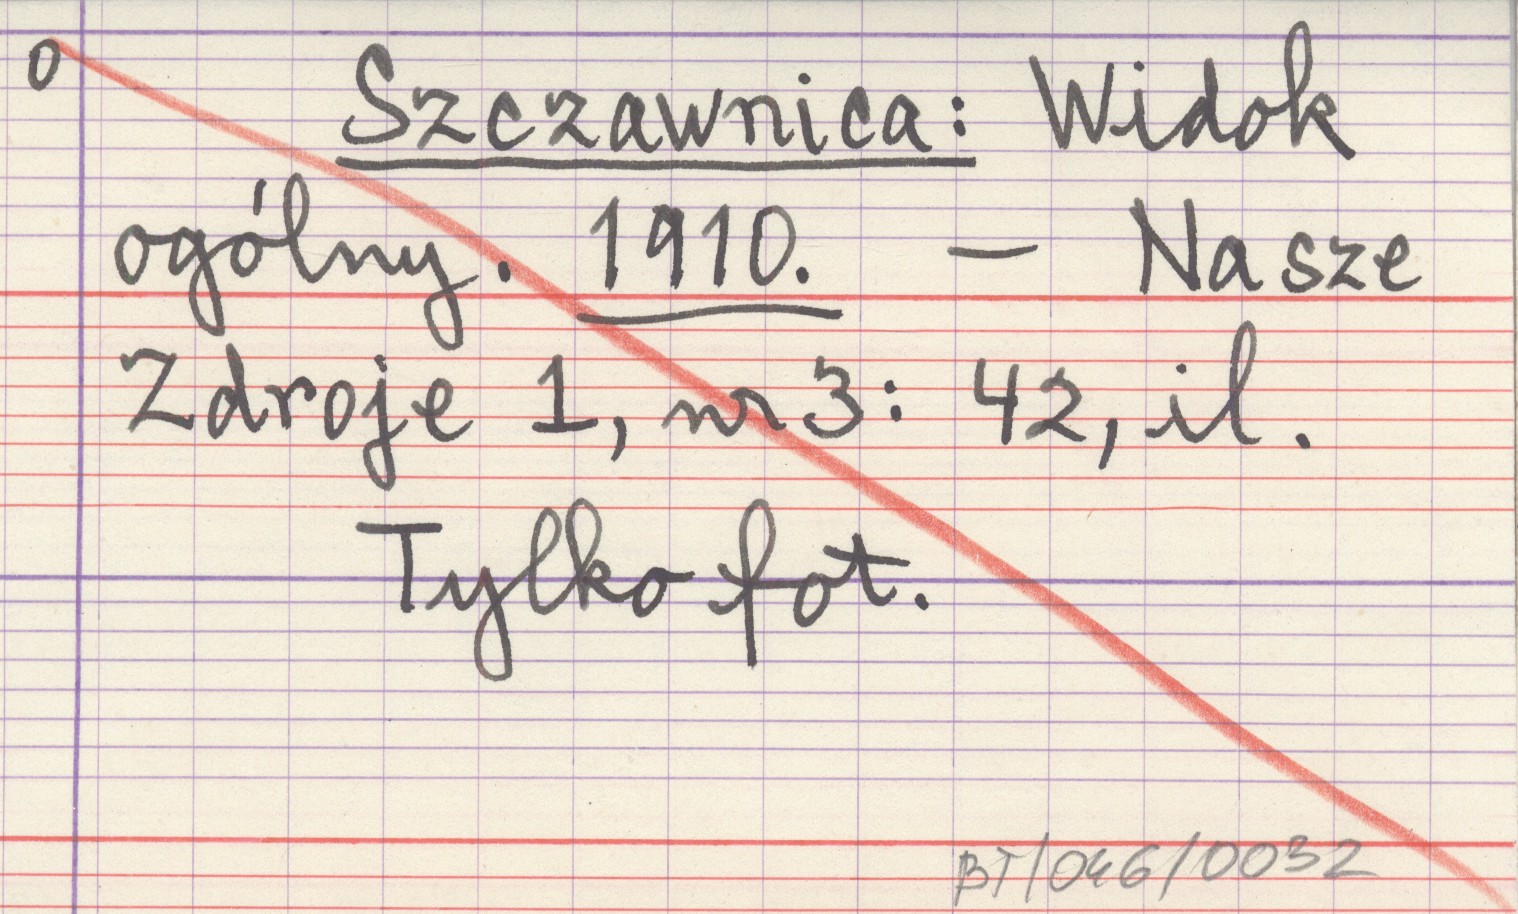 0
Szczawnica: Widok
ogólny. 1910. — Nasze
Zdroje 1, nr 3: 42, il.
Tylko fot.
BT/046/0032